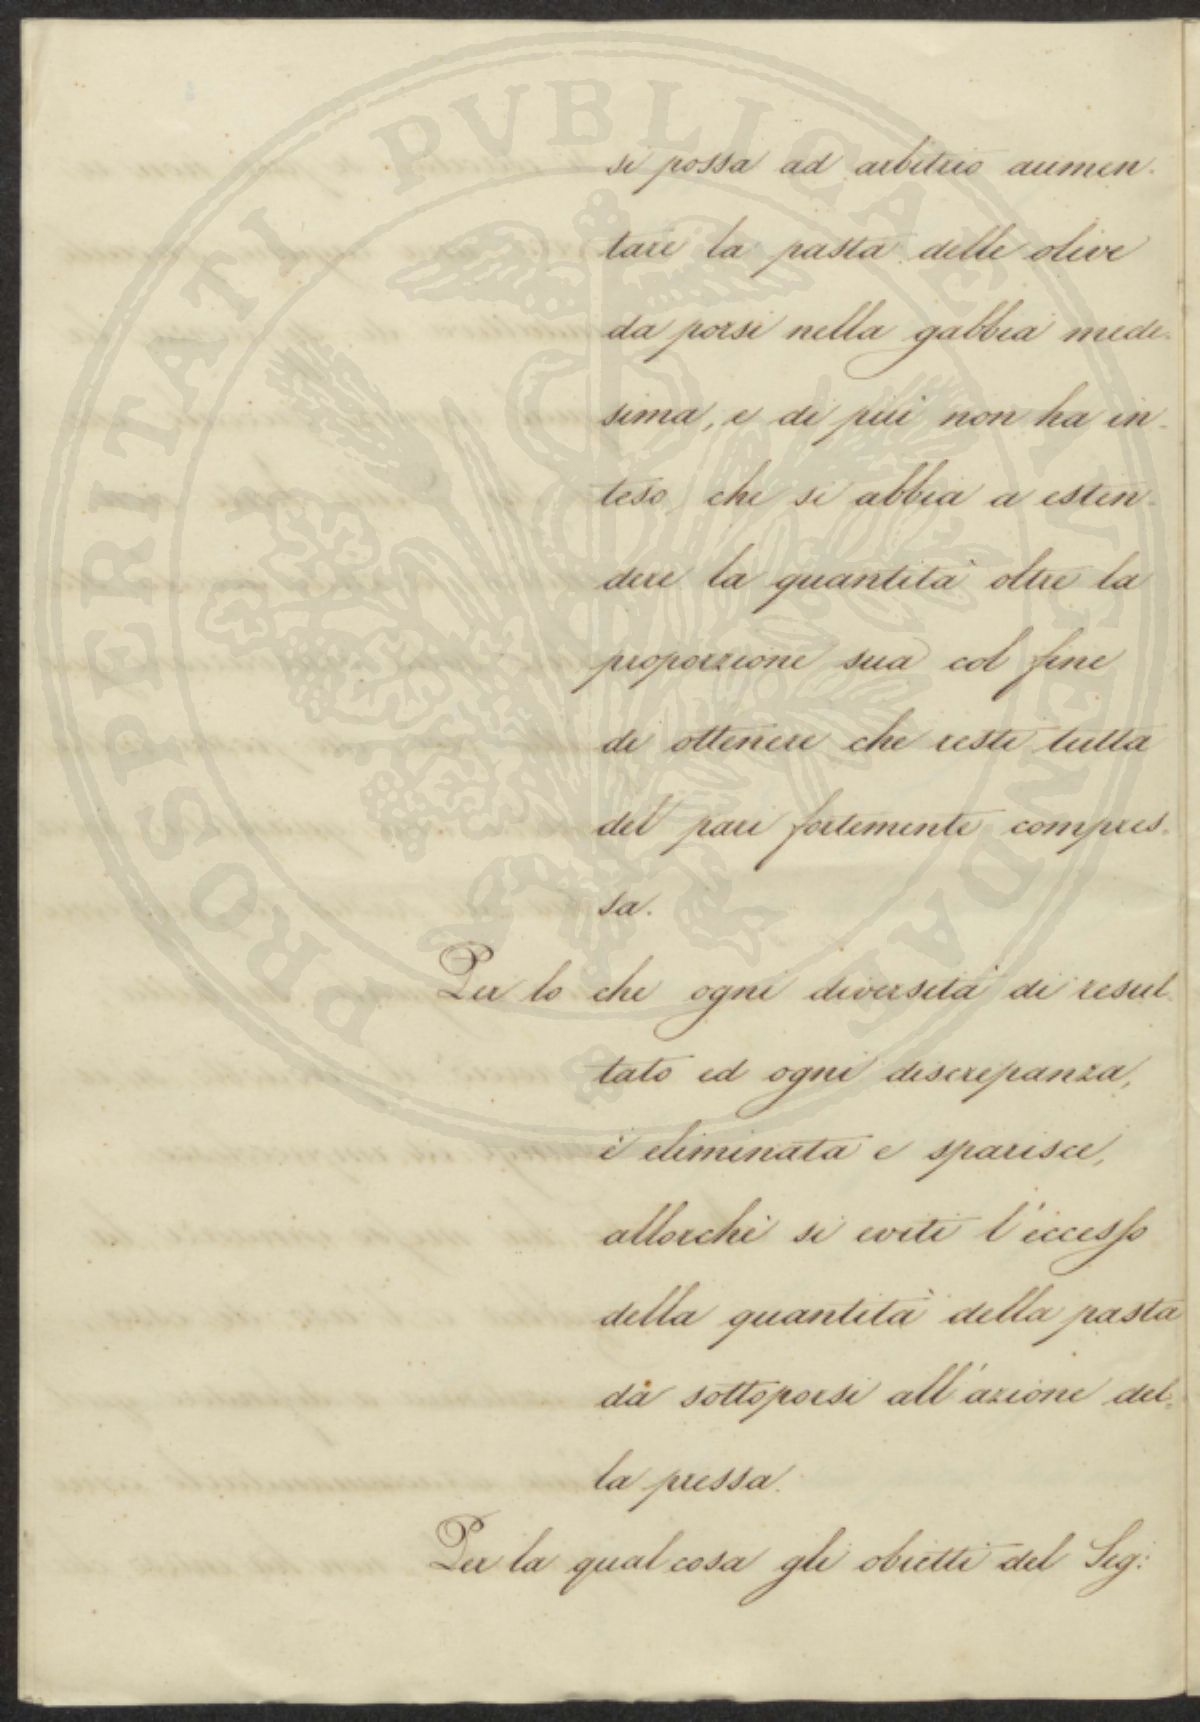 PROSPERITATI PVBLICAE AVGENDAE
si possa ad arbitrio aumen-
tare la pasta delle olive
da porsi nella gabbia mede-
sima, e di più non ha in-
teso che si abbia a esten-
dere la quantità oltre la
proporzione sua col fine
di ottenere che resti tutta
del pari fortemente compres-
sa.
Per lo che ogni diversità di resul-
tato ed ogni discrepanza,
è eliminata e sparisce,
allorchè si eviti l'eccesso
della quantità della pasta
da sottoporsi all'azione del-
la pressa.
Per la qual cosa gli obietti del Sig: